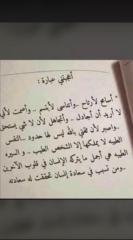 أعجبتني عبارة :
" أسامح لأرتاح .. وأتناسى لأبتسم .. وأصمت لأني
لا أريد أن أجادل .. وأتجاهل لأن لا شيء يستحق
وأصبر لأن ثقتي بالله ليس لها حدود .. النفس
الطيبه لا يملكها إلا الشخص الطيب .. و السيره
الطيبه هي أجمل ما يتركه الإنسان في قلوب الآخرين
.. ومن تسبب في سعادة إنسان تحققت له سعادته